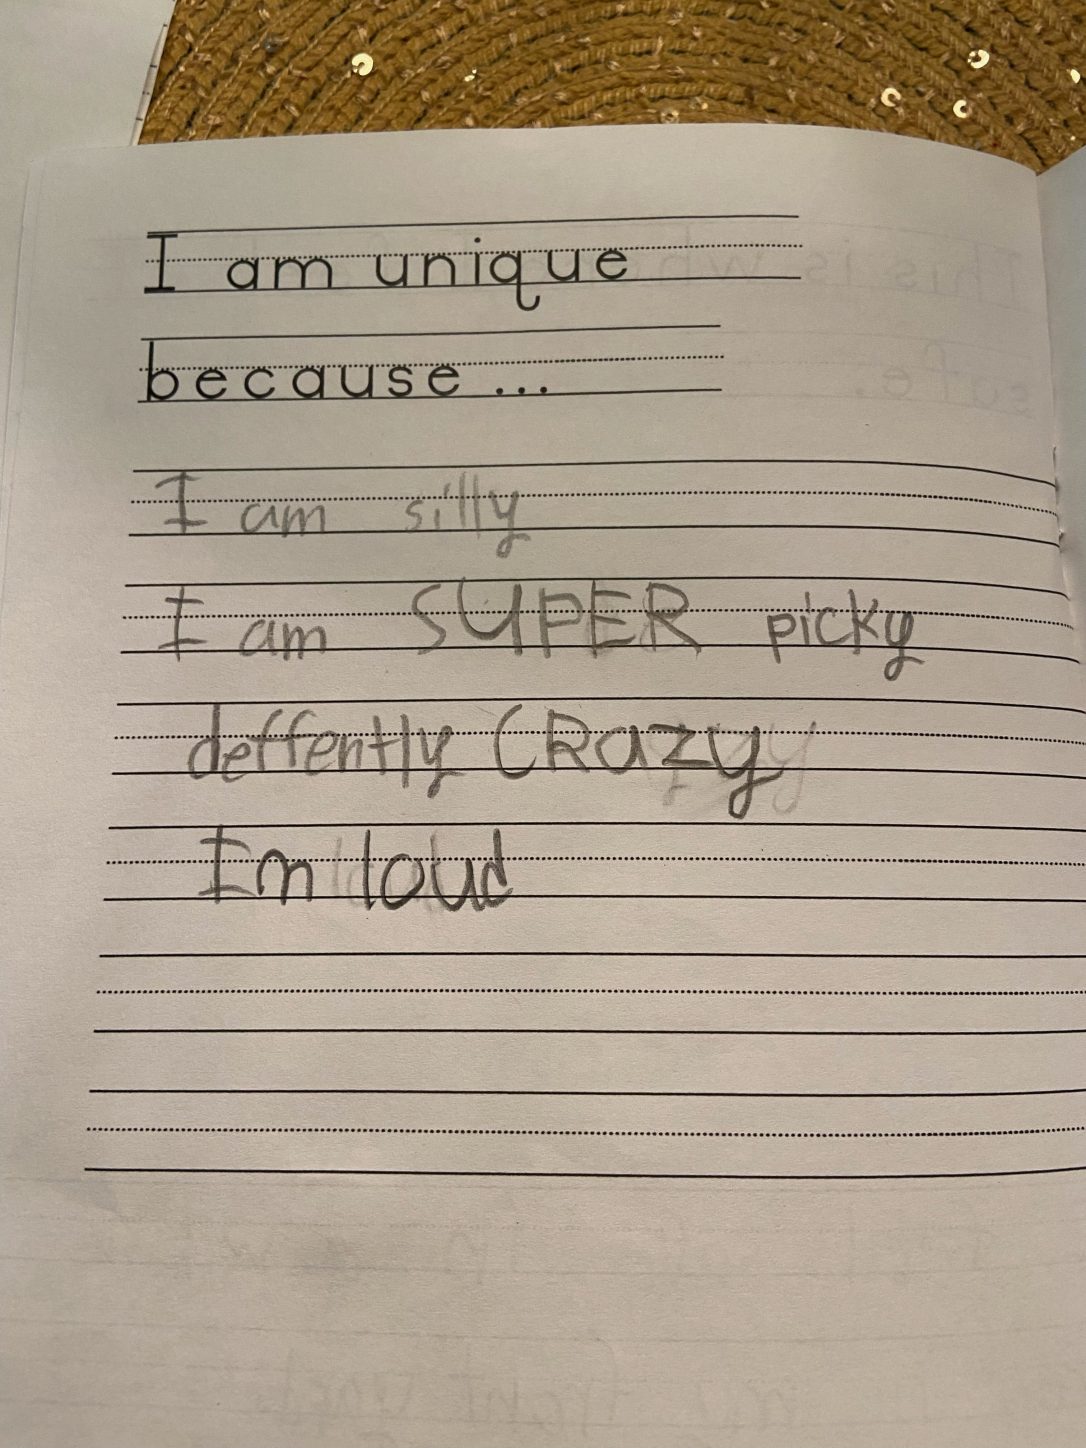 I am unique
because ...
I am silly
I am SUPER picky
deffently CRazy
Im loud